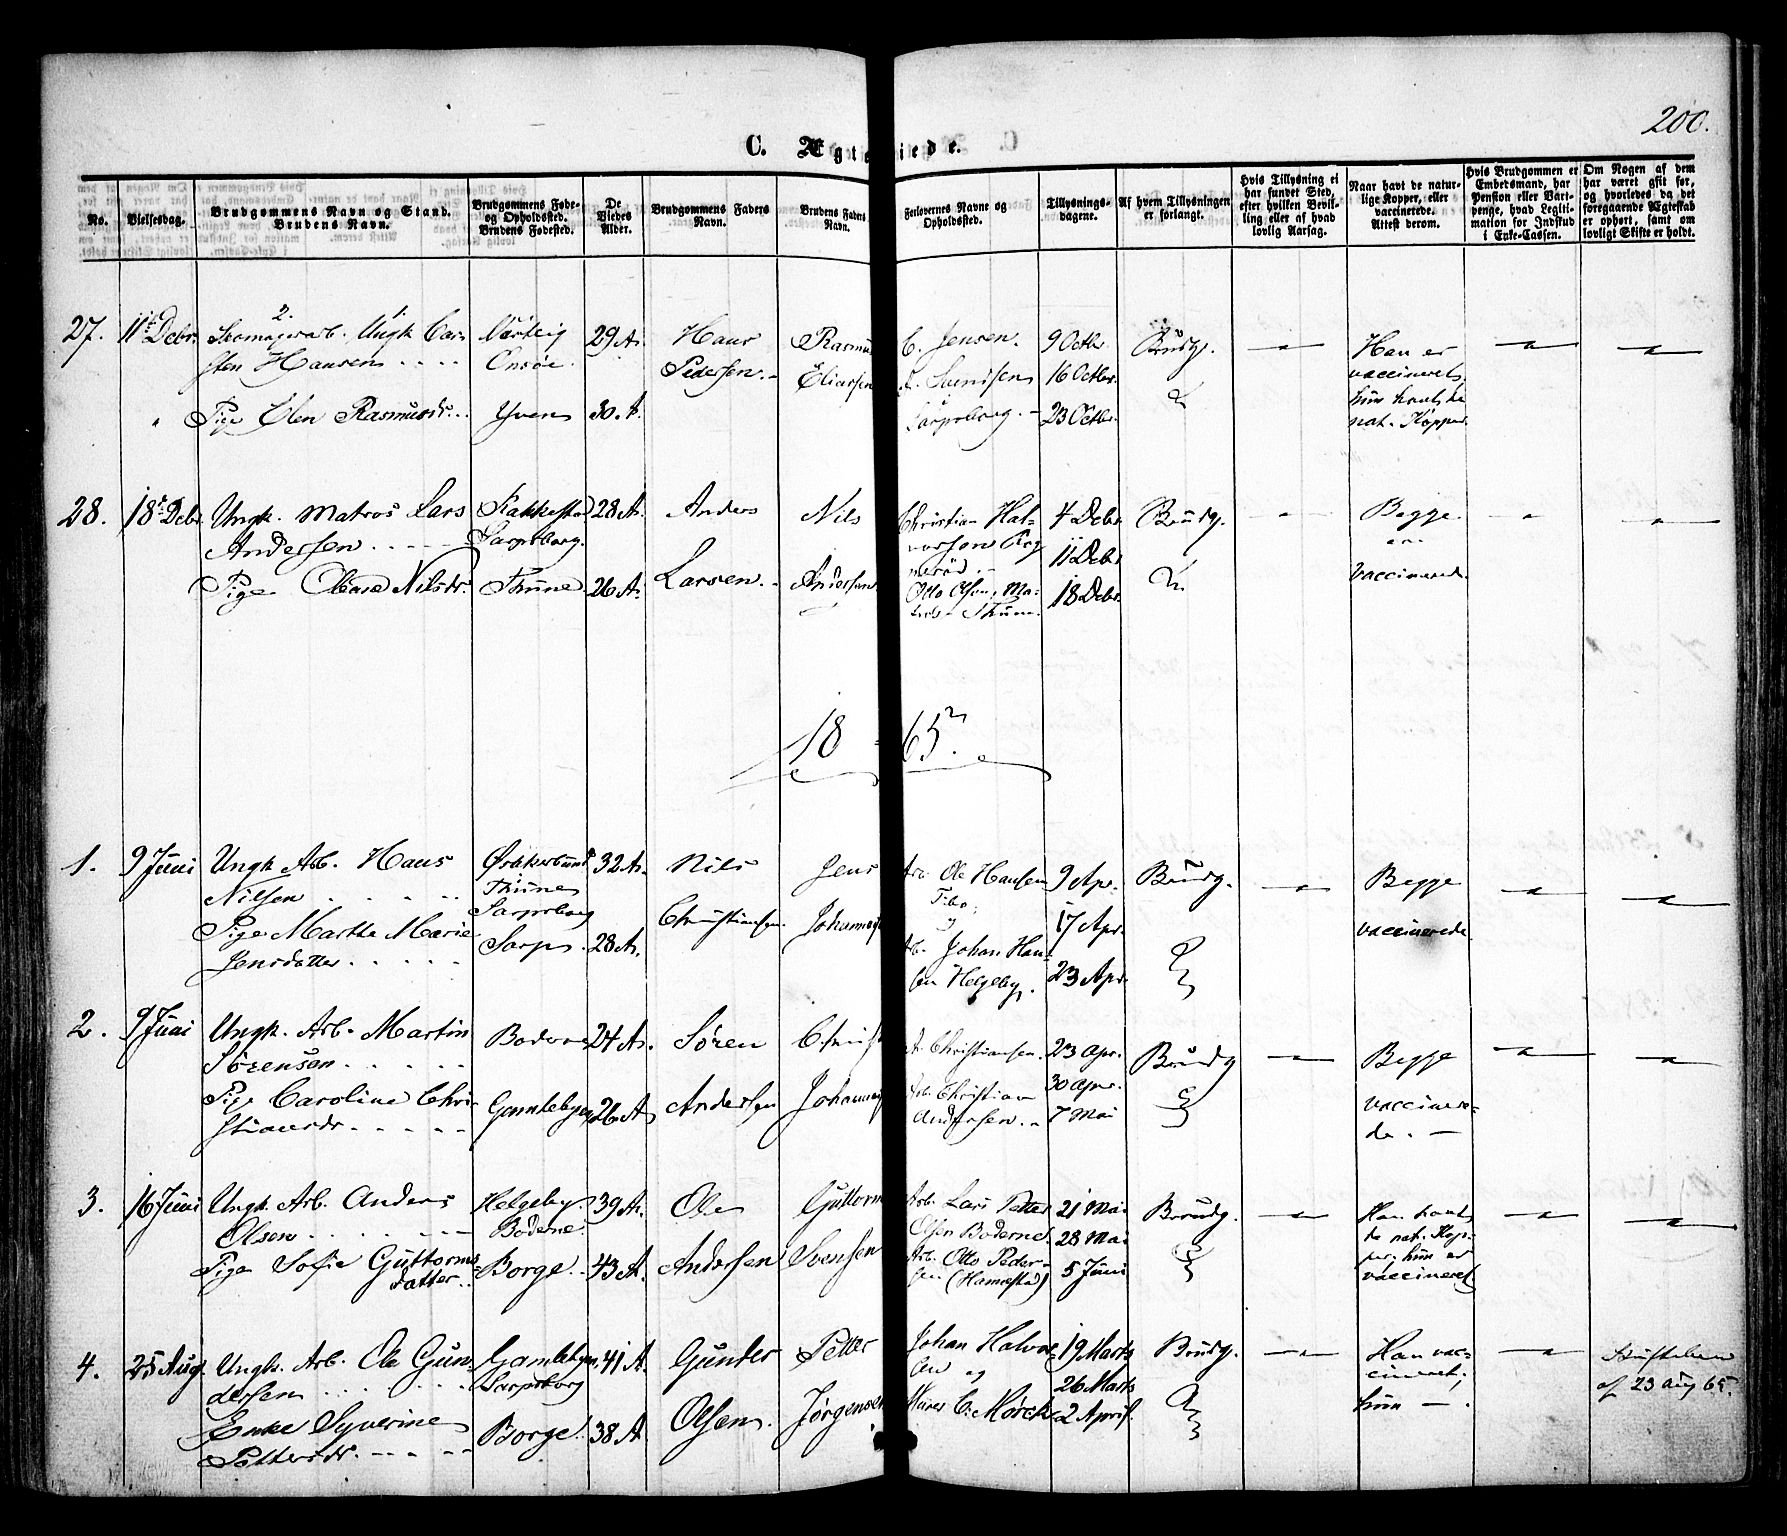 200.
C. Ægteviede.
No.
Vielsesdag.
Brudgommens Navn og Stand.
Brudens Navn.
Brudgommens Føde-
og Opholdssted.
Brudens Fødested.
De
Viedes
Alder.
Brudgommens Faders
Navn.
Brudens Faders
Navn.
Forlovernes Navne og
Opholdssted.
Tillysnings-
dagene.
Af hvem Tillysningen
er forlangt.
Hvis Tillysning ei
har fundet Sted,
efter hvilken Bevil-
ling eller af hvad
lovlig Aarsag.
Naar havt de natur-
lige Kopper, eller
vaccinerede.
Attest derom.
Hvis Brudgommen er
Embedsmand, har
Pension eller Vart-
penge, hvad Legiti-
mation for Indskud
i Enke-Cassen.
Om Nogen af dem
har været gift før,
og hvorledes da det
foregaaende Ægteskab
er ophørt, samt om
lovligt Skifte er holdt.
27. 11te Debr. Ungk. Car-
sten Hansen
Onsøe.
29 A.
Hans
Pedersen.
Rasmus
Eliassen
C. Jensen.
Sarpsborg.
9 Octbr.
16 Octbr.
23 Octbr.
Brudg.
Han er
vaccineret,
hun havt de
nat. Kopper.
" Pige Elen Rasmusdr. Yven 30 A.
28. 18de Debr. Ungk. Matros Lars
Andersen
Rakkestad
Sarpsborg.
28 A.
Anders
Larsen.
Nils
Andersen
Christian Hal-
vorsen
Otto Olsen,
Thune.
4 Debr.
11 Debr.
18 Debr.
Brudg.
Begge
vaccinerede.
Pige Nilsdr. Thune 26 A.
1865.
1. 9 Juni Ungk. Arb. Hans
Nilsen
Thune
Sarpsborg
32 A.
Nils
Christiansen.
Jens
Johannes
Arb. Ole Hansen
og
Arb. Johan Han-
sen Helgeby.
9 Apr.
17 Apr.
23 Apr.
Brudg.
Begge
vaccinerede
Pige Marthe Marie
Jensdatter
Sarps. 28 A.
2. 9 Juni Ungk. Arb. Martin
Sørensen
24 A.
Søren
Andersen
Christ
Johannes
A. Christiansen.
Arb. Christian
Andersen.
23 Apr.
30 Apr.
7 Mai
Brudg
Begge
vaccinere-
de.
Pige Caroline Chri-
stiansdr.
Gamlebyen 26 A
3. 16 Juni Ungk. Arb. Anders
Olsen
Helgeby.
Boderne.
39 A.
Ole
Andersen
Guttorm
Svensen
Arb. Lars Petter
Olsen Boderne.
Arb. Otto Peder-
sen (Hannestad)
21 Mai
28 Mai
5 Juni
Brudg.
Han havt
de nat. Kop-
per, hun er
vaccineret.
Pige Sofie Guttorms-
datter.
Borge. 43 A.
4. 25 Aug. Ungk. Arb. Ole Gun-
dersen
Gamlebyen.
Sarpsborg
41 A.
Gunder
Olsen.
Petter
Jørgensen
Johan Halvor-
sen og
C. Mørch
19 Marts
26 Marts
2 April.
Brudg.
Han vac-
cineret,
hun — .
af 23 Aug 65.
Enke Syverine
Pettersdr.
Borge. 38 A.